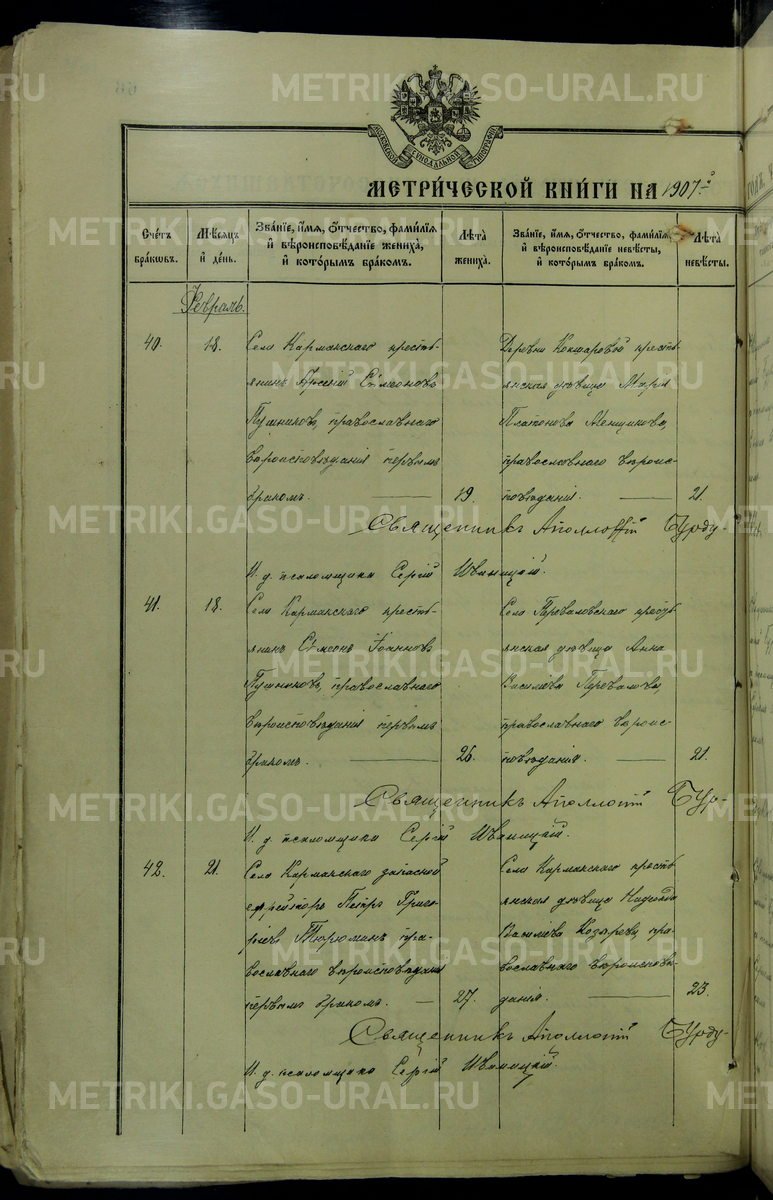 METRIKI.GASO-URAL.RU
МОСКОВСКОЙ СѴНОДАЛЬНОЙ ТИПОГРАФІИ
МЕТРИ́ЧЕСКОЙ КНИ́ГИ НА 1907 г.
Сче́тъ бра́кѡвъ.
Мѣ́сяцъ и҆ де́нь.
Зва́нїе, и҆́мя, ѻ҆́тчество, фами́лїя
и҆ вѣроисповѣ́данїе жениха̀,
и҆ кото́рымъ бра́комъ.
Лѣ́та жениха̀.
Зва́нїе, и҆́мя, ѻ҆́тчество, фами́лїя,
и҆ вѣроисповѣ́данїе невѣ́сты,
и҆ кото́рымъ бра́комъ.
Лѣ́та невѣ́сты.
Февраль.
40.
18.
Села Кармакскаго кресть-
янинъ Арсеній Симеоновъ
Пушниковъ, православнаго
вѣроисповѣданія первымъ
бракомъ.
19.
Деревни Кокшаровой кресть-
янская дѣвица Марія
Платонова Менщикова,
православнаго вѣроис-
повѣданія.
21.
Священникъ Аполлоній Буду-
И. д. псаломщика Сергій Иваницкій.
41.
18.
Села Кармакскаго кресть-
янинъ Симеонъ Іоанновъ
Пушниковъ, православнаго
вѣроисповѣданія первымъ
бракомъ.
26.
Села Переваловскаго кресть-
янская дѣвица Анна
Василіева Перевалова,
православнаго вѣроис-
повѣданія.
21.
Священникъ Аполлоній
И. д. псаломщика Сергій Иваницкій.
42.
21.
Села Кармакскаго запасной
ефрейторъ Петръ Григо-
ріевъ Тюрюминъ, пра-
вославнаго вѣроисповѣданія
первымъ бракомъ.
27.
Села Кармакскаго кресть-
янская дѣвица Надежда
Василіева Козырева, пра-
вославнаго вѣроисповѣ-
данія.
23.
Священникъ Аполлоній
И. д. псаломщика Сергій Иваницкій.